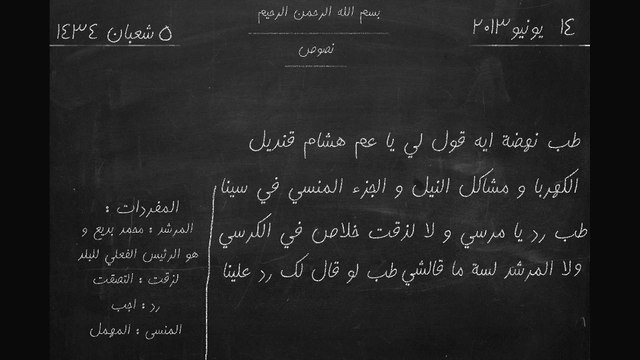 بسم الله الرحمن الرحيم
١٤ يونيو ٢٠١٣
٥ شعبان ١٤٣٤
نصوص
طب نهضة ايه قول لي يا عم هشام قنديل
الكهربا و مشاكل النيل و الجزء المنسي في سينا
طب رد يا مرسي و لا لزقت خلاص في الكرسي
ولا المرشد لسة ما قالشي طب لو قال لك رد علينا
المفردات :
المرشد : محمد بديع و
هو الرئيس الفعلي للبلد
لزقت : التصقت
رد : اجب
المنسي : المهمل